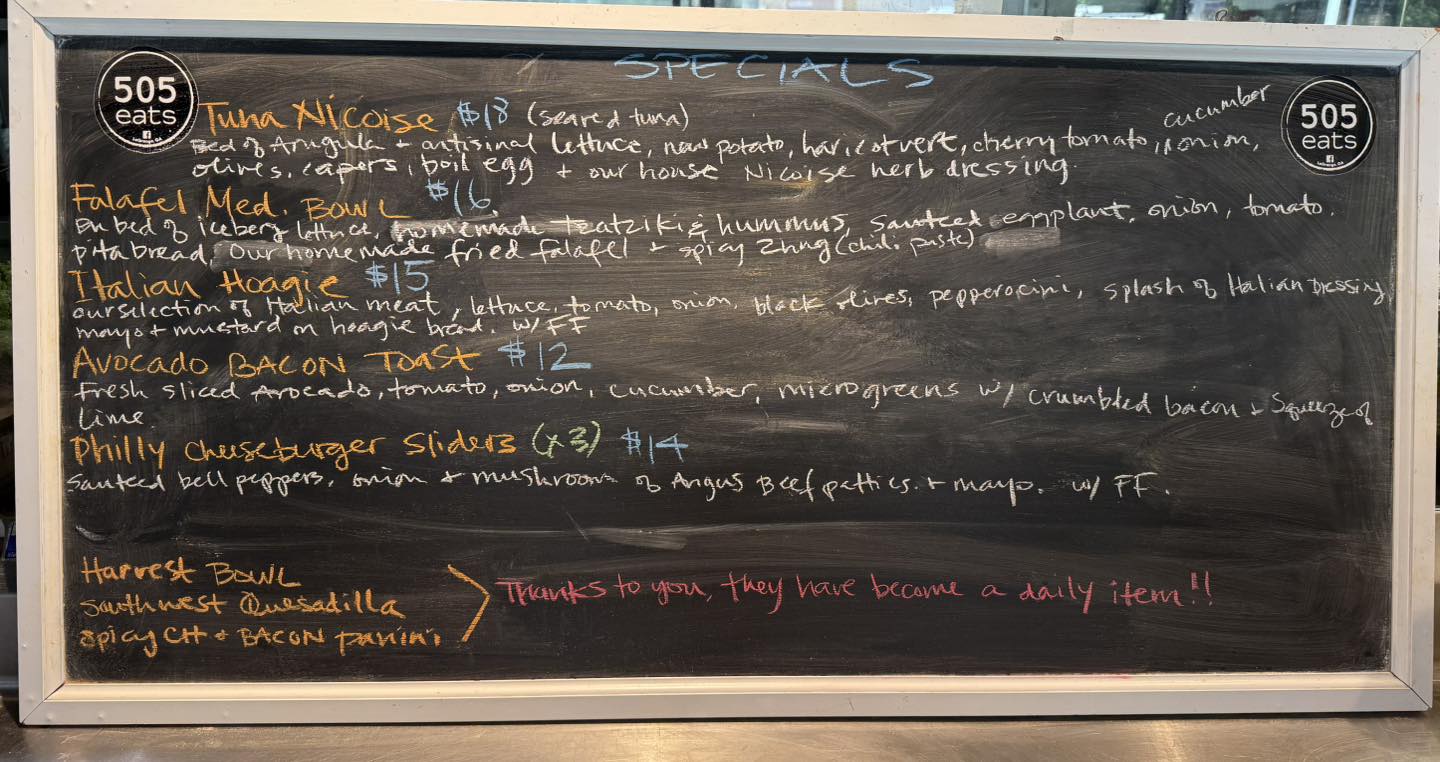 SPECIALS
505 eats
505 eats
Tuna Nicoise $18 (seared tuna)
cucumber
Bed of Arugula + artisinal lettuce, new potato, haricot vert, cherry tomato, onion,
olives, capers, boil egg + our house Nicoise herb dressing.
Falafel Med. BOWL $16
On bed of iceberg lettuce, homemade tzatziki & hummus, sauteed eggplant, onion, tomato.
pita bread, Our homemade fried falafel + spicy Zhug (chili paste)
Italian Hoagie $15
our selection of Italian meat, lettuce, tomato, onion, black olives, pepperocini, splash of Italian Dressing
mayo + mustard on hoagie bread. w/ FF
AVOCADO BACON TOAST $12
Fresh sliced Avocado, tomato, onion, cucumber, microgreens w/ crumbled bacon + Squeeze of
Lime.
Philly Cheeseburger Sliders (x3) $14
Sauteed bell peppers, onion + mushroom of Angus Beef patties. + mayo. w/ FF.
Harvest BOWL
Southwest Quesadilla
Spicy CH + BACON panini
Thanks to you, they have become a daily item!!